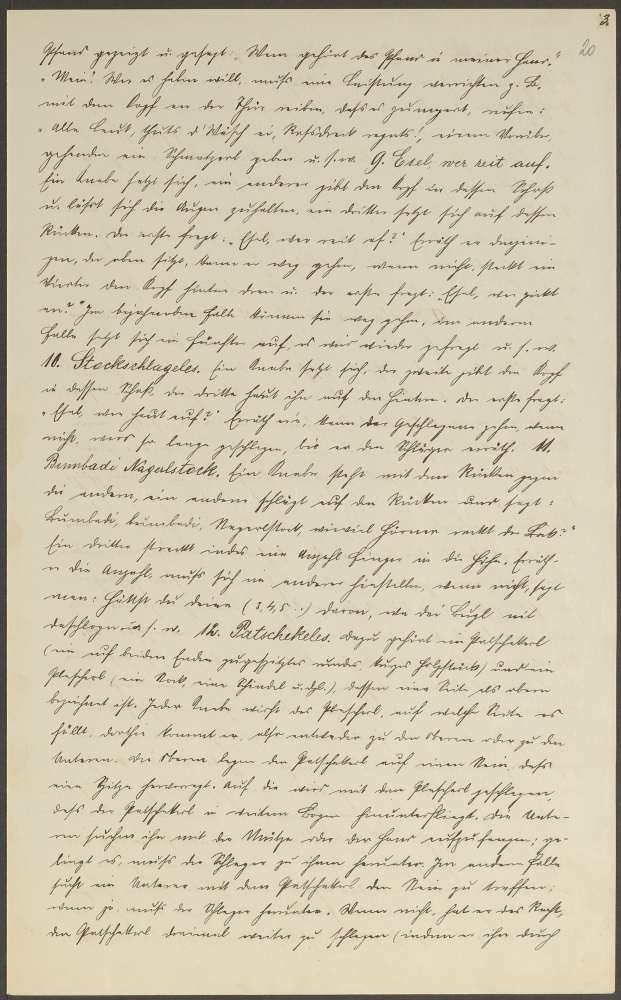 3.
20
Pfand gezeigt u. gefragt: „Wem gehört das Pfand in meiner Hand."
„Mein! Wer es haben will, muß eine Leistung verrichten z. B.
mit dem Kopf an der Thür reiben, daß es, rufen:
„Alle Leut, thuts d'Wäsch ei, Roßdreck regnets!, einem Vorüber-
gehenden ein Schmatzerl geben u. s. w. 9. Esel, wer reit auf.
Ein Knabe setzt sich, ein anderer gibt den Kopf in dessen Schoß
u. läßt sich die Augen zuhalten, ein dritter setzt sich auf dessen
Rücken. Der erste fragt: „Esel, wer reit af?" Erräth er denjeni-
gen, der oben sitzt, kann er weg gehen, wenn nicht, steckt ein
Vierter den Kopf hinten dran u. der erste fragt: „Esel, wer
an?" Im bejahenden Falle können sie weg gehen, im anderen
Falle setzt sich ein Fünfter auf, es wird wieder gefragt u. s. w.
10. Stockschlageles. Ein Knabe setzt sich, der zweite gibt den Kopf
in dessen Schoß, der dritte haut ihn auf den Hintern. Der erste fragt:
„Esel, wer haut auf?" Erräth er's, kann der Geschlagene gehen, wenn
nicht, wird so lange geschlagen, bis er den Schläger erräth. 11.
Bumbadi Nagerlstock. Ein Knabe steht mit dem Rücken gegen
die andern, ein anderer schlägt auf den Rücken und sagt:
Bumbadi, bumbadi, Nagerlstock, wieviel Hörner reckt der Bock?"
Ein dritter streckt indes eine Anzahl Finger in die Höhe. Erräth
er die Anzahl, muß sich ein anderer hinstellen, wenn nicht, sagt
man: Hättst du deine (3, 4, 5 ..) daron, wa dei Bugl nit
daschlogn u. s. w. 12. Patschekeles. Dazu gehört ein Patschekerl
(ein auf beiden Enden zugespitztes rundes, kurzes Holzstück) und ein
Plescherl (ein Stock, eine Schindel u. dgl.), dessen eine Seite als obere
bezeichnet ist. Jeder Knabe wirft das Plescherl, auf welche Seite es
fällt, dorthin kommt er, also entweder zu den Oberen oder zu den
Unteren. Die Oberen legen den Patschekerl auf einen Stein, daß
eine Spitze hervorragt. Auf die wird mit dem Plescherl geschlagen,
daß der Patschekerl in weitem Bogen herunterfliegt. Die Unte-
ren suchen ihn mit der Mütze oder der Hand aufzufangen; ge-
lingt es, muß der Schläger zu ihnen herunter. Im andern Falle
sucht ein Unterer mit dem Patschekerl den Stein zu treffen;
wenn ja, muß der Schläger herunter. Wenn nicht, hat er das Recht,
den Patschekerl dreimal weiter zu schlagen (indem er ihn durch